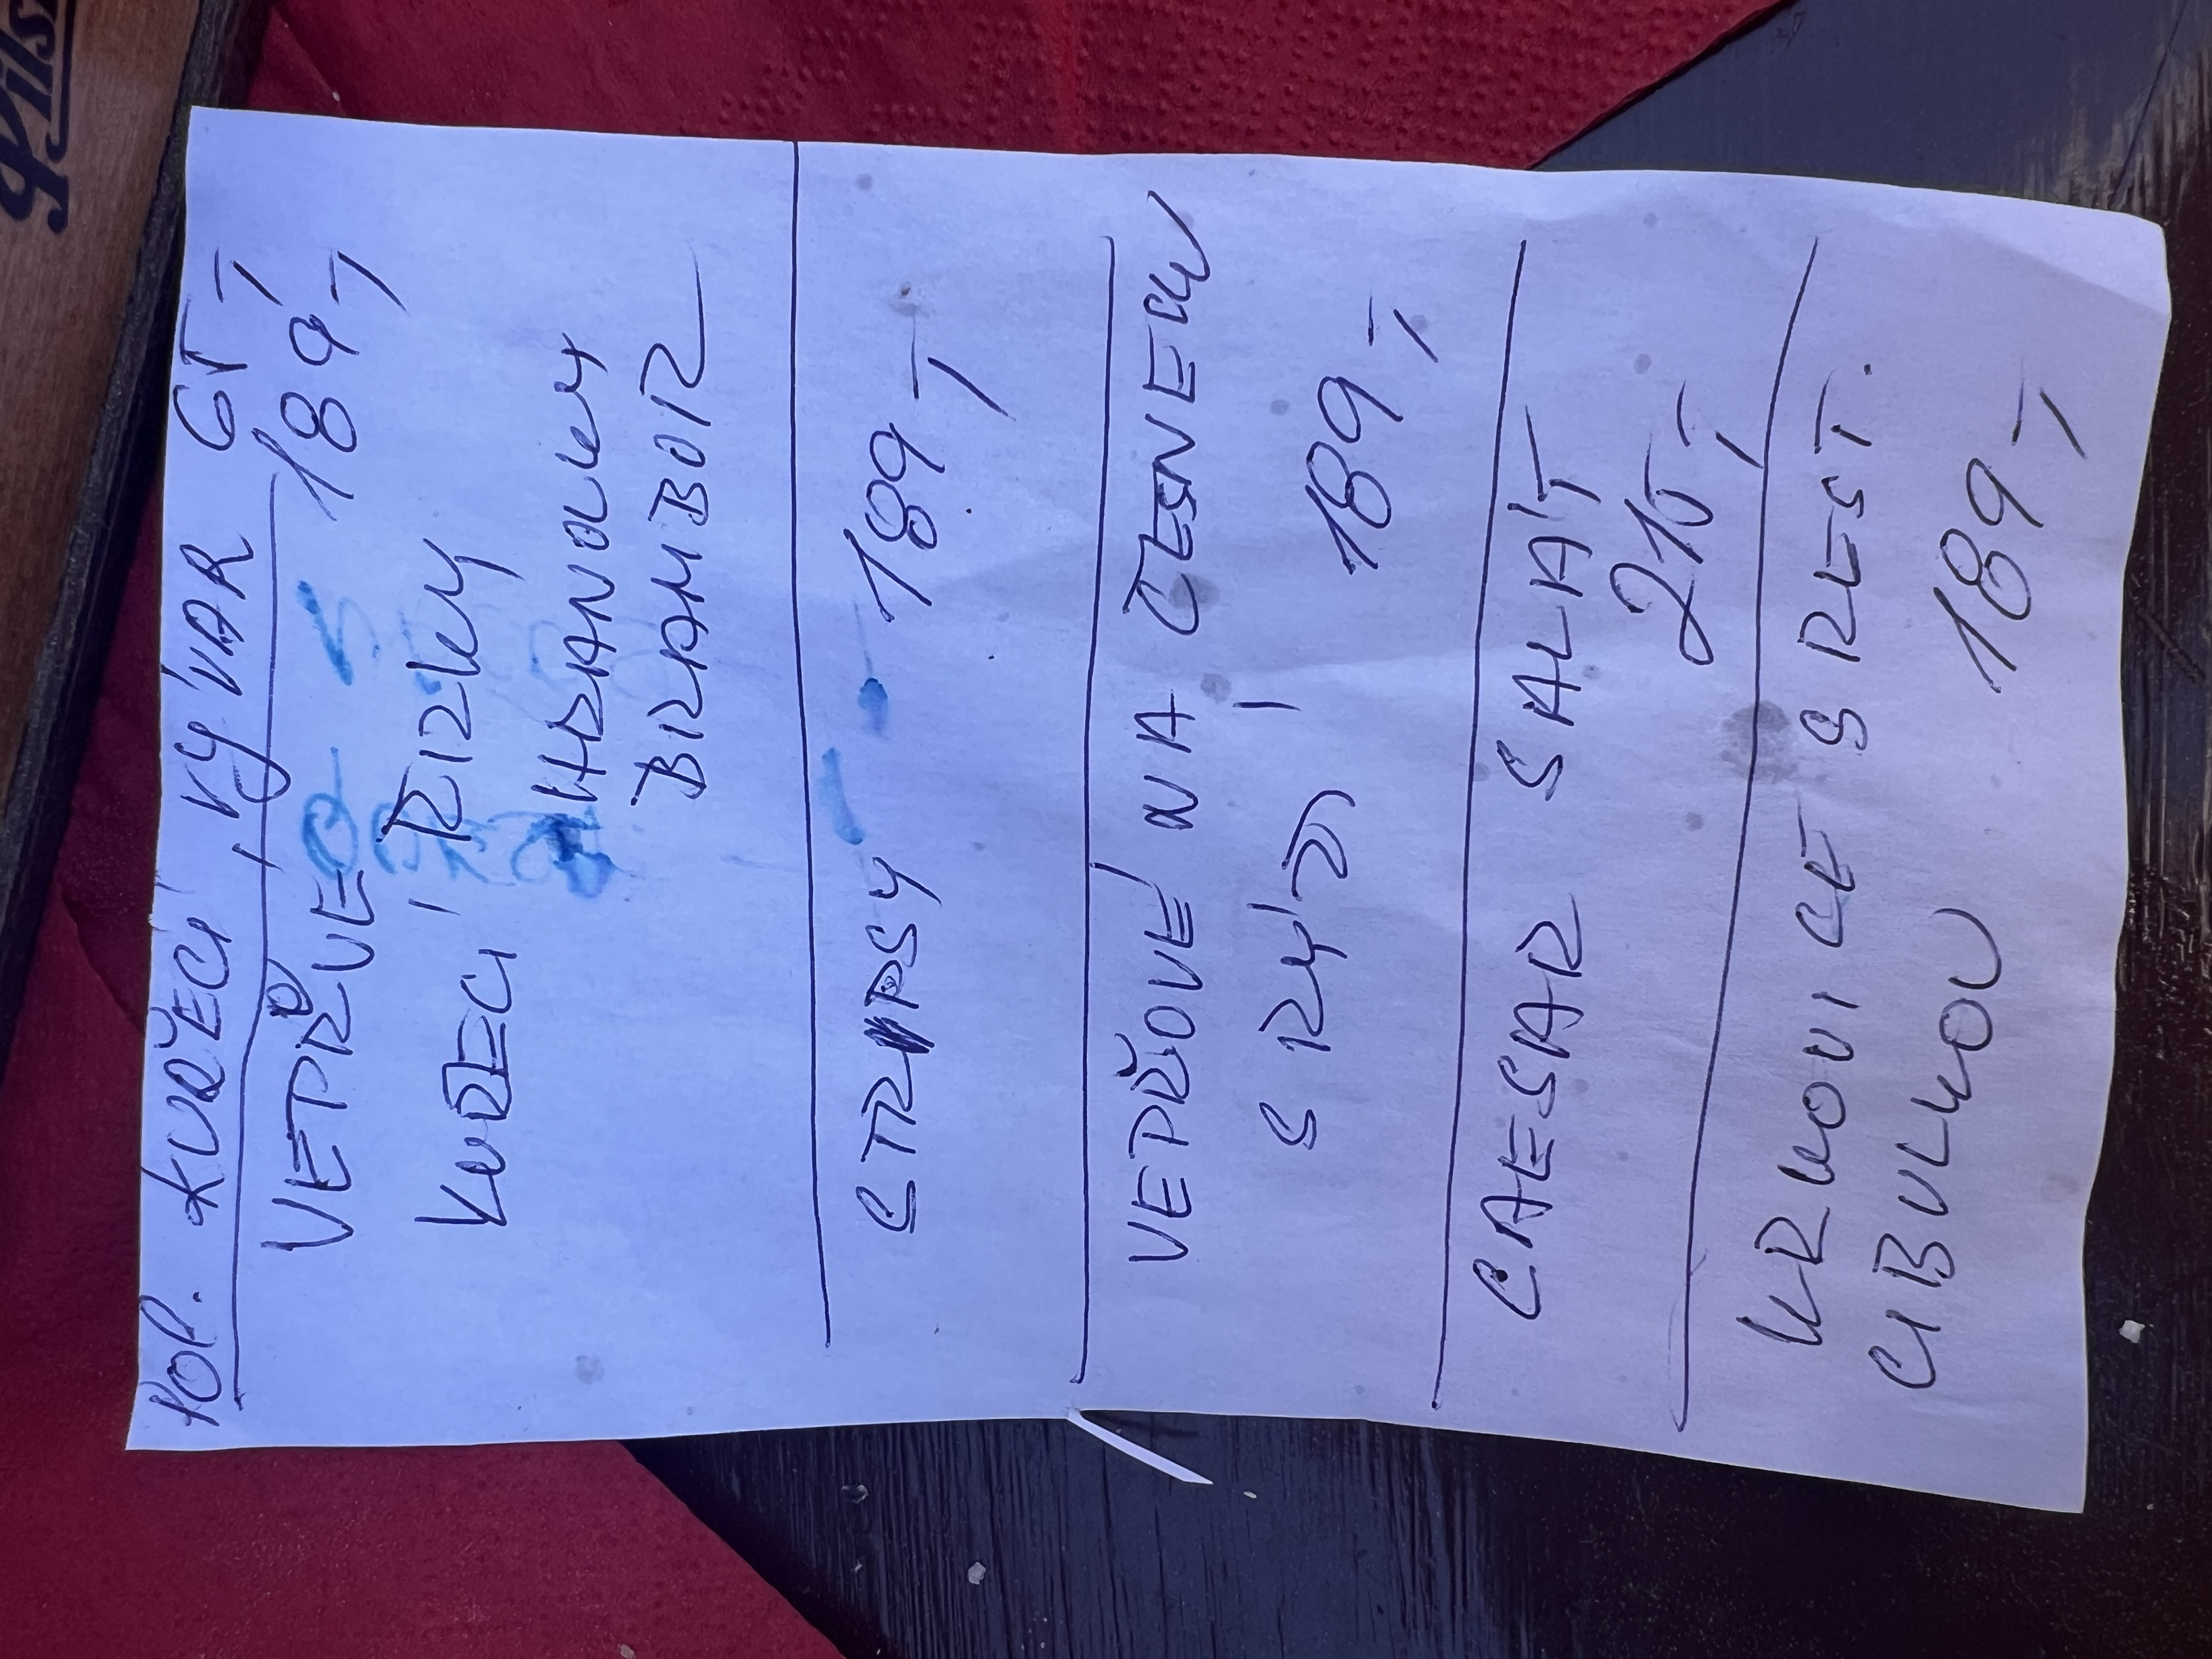 Pilsn
POL. KUŘECÍ VÝVAR 65,-
VEPŘOVÉ 189,-
KUŘECÍ ŘÍZKY
HRANOLKY
BRAMBOR
STRIPSY 189,-
VEPŘOVÉ NA ČESNEKU
S RÝŽÍ 189,-
CAESAR SALÁT
215,-
KRKOVICE S REST.
CIBULKOU 189,-